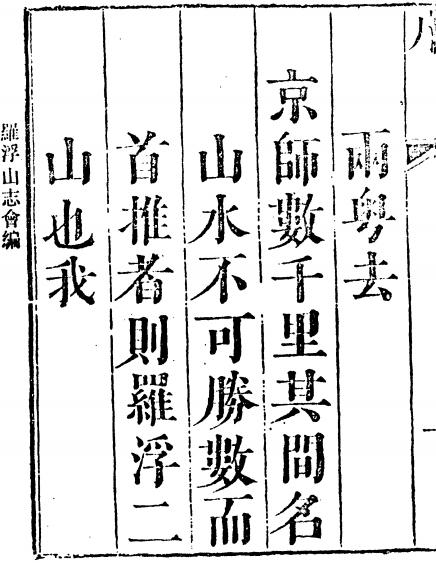 兩粤去
京師數千里其間名
山水不可勝數而
首推者則羅浮二
山也我
羅浮山志會編